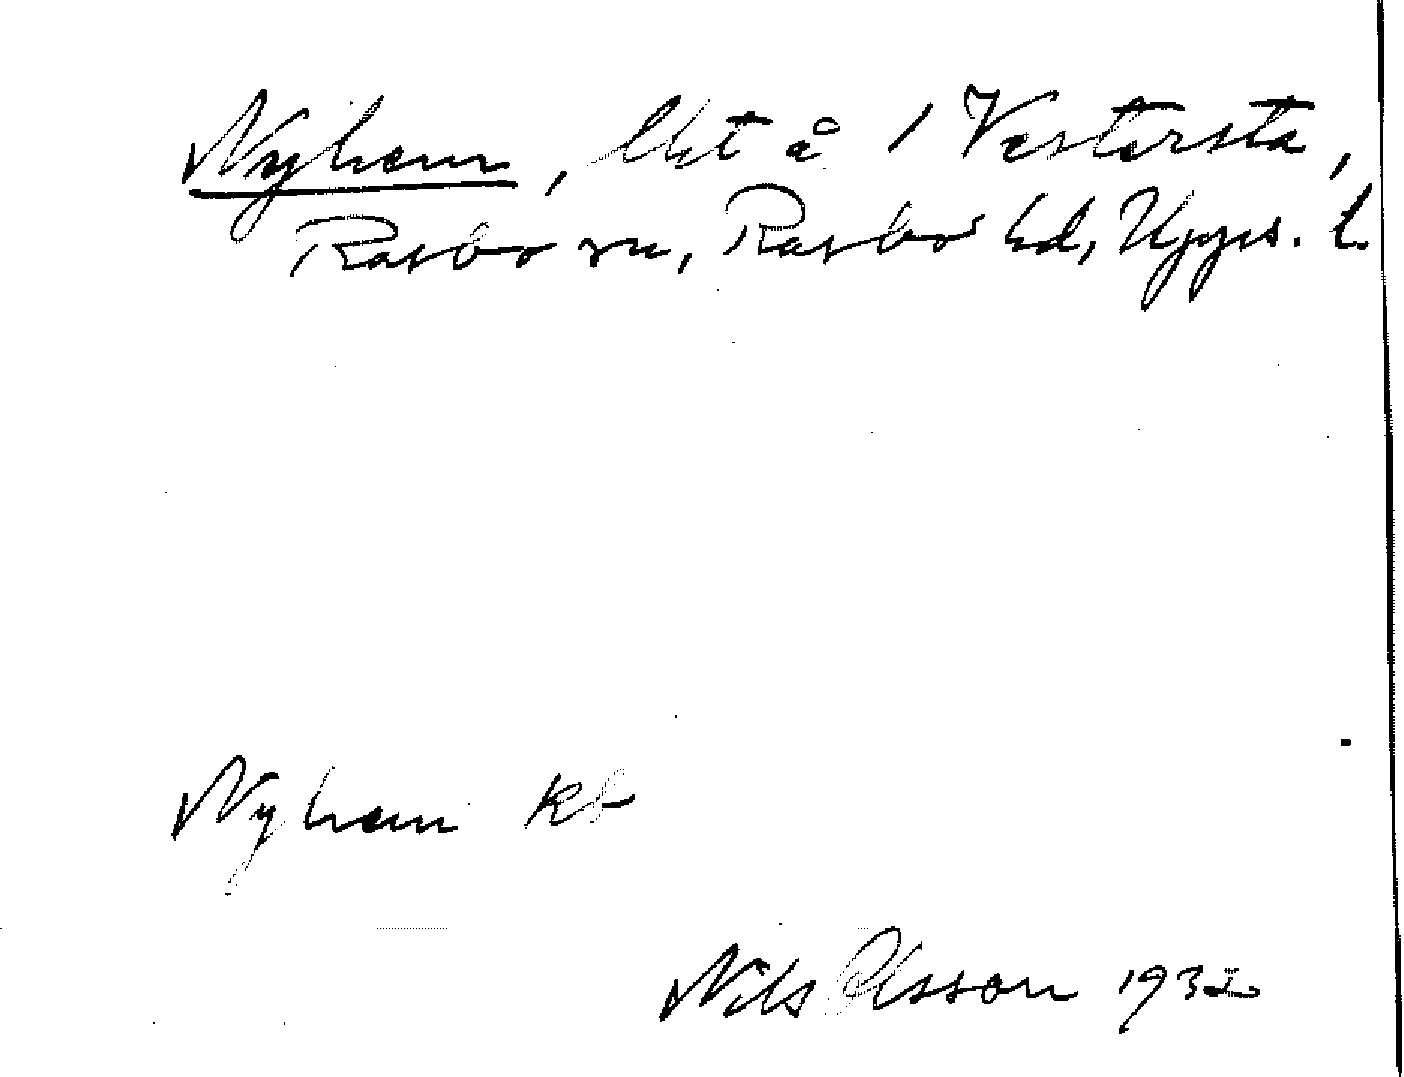 Nyhem, lht å 1 Vestersta,
Rasbo sn, Rasbo hd, Upps. l.
Nyhem kb
Nils Olsson 1932